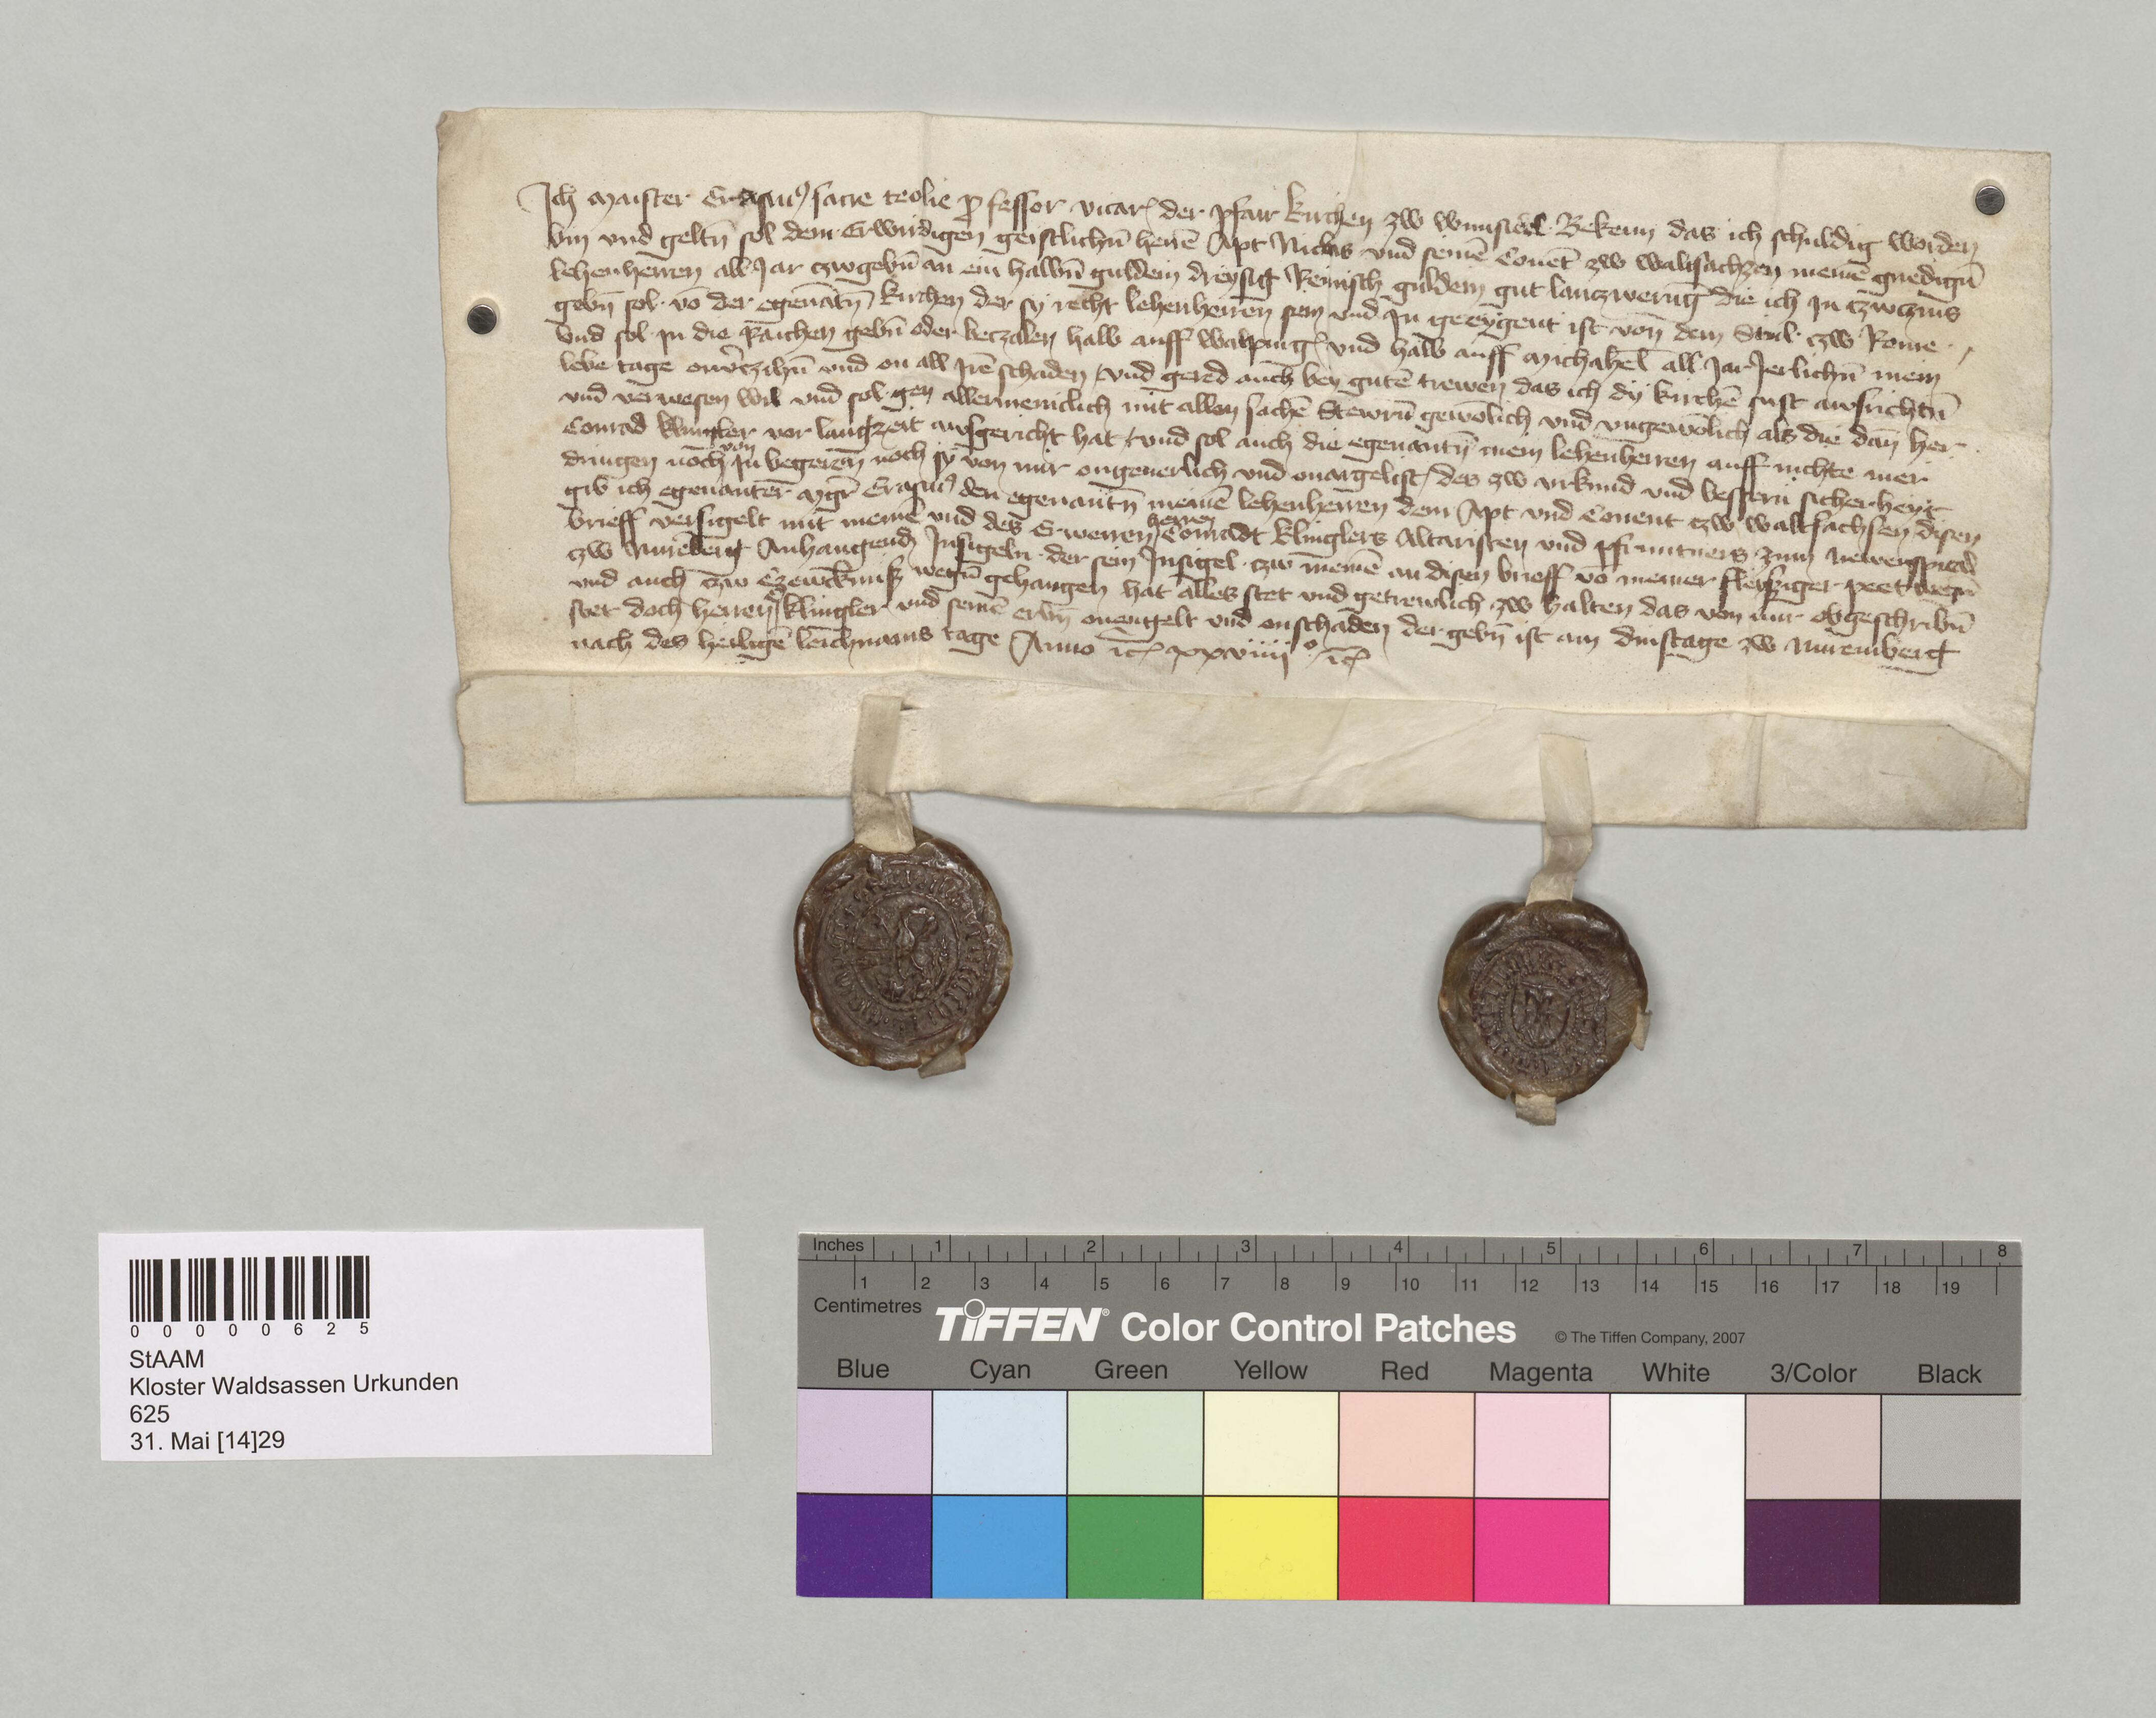 Ich maister Erasmꝰ sacre teolie ꝓfessor vicarꝭ der pfarr kirchen zw wunsidel Bekenn das ich schuldig worden
bin vnd geltn̄ sol dem Erwirdigen geistlichn̄ herrē Apt Niclas vnd seinē Conēt zw waltsachzen meinē gnedign̄
lehenherren all Jar czwgebn̄ an ein halbn̄ guldein dreysigk Reinisch guldein gut lanczwerūg die ich Jn czwczins
gebn̄ sol vō der egenātn̄ kirchen der sy recht lehenherren sein vnd Jn geeygent ist von dem Stul czw Rome
vnd sol Jn die raichen gebn̄ oder beczalen halb auff walpurgꝭ vnd halb auff Michahel all Jar Jerlichn̄ mein
lebe tage onv̄czihn̄ vnd on all Jrē schaden vnd gered auch bey gutē trewen das ich dy kirchē sust awsrichtn̄
vnd verwesen wil vnd sol gen allermeniclich mit allen sachē Stewrn̄ gewōlich vnd vngewōlich als die dan̄ her
Conrad klingler vor langzeit awsgericht hat vnd sol auch die egenantn̄ mein lehenherren auff nichte mer
dringen noch von Jn begeren noch sy von mir ongeuerlich vnd onargelist des zw vrkund vnd bessern sicherheyt
gib ich egenanter mgr̄ Erasmꝰ den egenantn̄ meinē lehenherren dem Apt vnd Conent czw waltsachsen disen
brieff versigelt mit meinē vnd des Erweren herren Conradt klinglers Altaristen vnd pfrunttners zum newenspital
zw Nurēberg Anhangendꝭ Jnsigeln der sein Jnsigel czw meinē an disen brieff vō meiner fleysziger peet wegn̄
vnd auch czw Czewcknisz wegn̄ gehangen hat alles stet vnd getrewlich zw halten das von mir obgeschribn̄
stet doch herren klingler vnd seinē erbn̄ onengelt vnd onschaden der gebn̄ ist am dinstage zw Nuremberg
nach des heiligē leichnams tage Anno ꝛcꝭ xxviiiiº ꝛcꝭ
0 0 0 0 0 6 2 5
StAAM
Kloster Waldsassen Urkunden
625
31. Mai [14]29
Inches 1 2 3 4 5 6 7 8
1 2 3 4 5 6 7 8 9 10 11 12 13 14 15 16 17 18 19
Centimetres
TIFFEN® Color Control Patches © The Tiffen Company, 2007
Blue Cyan Green Yellow Red Magenta White 3/Color Black